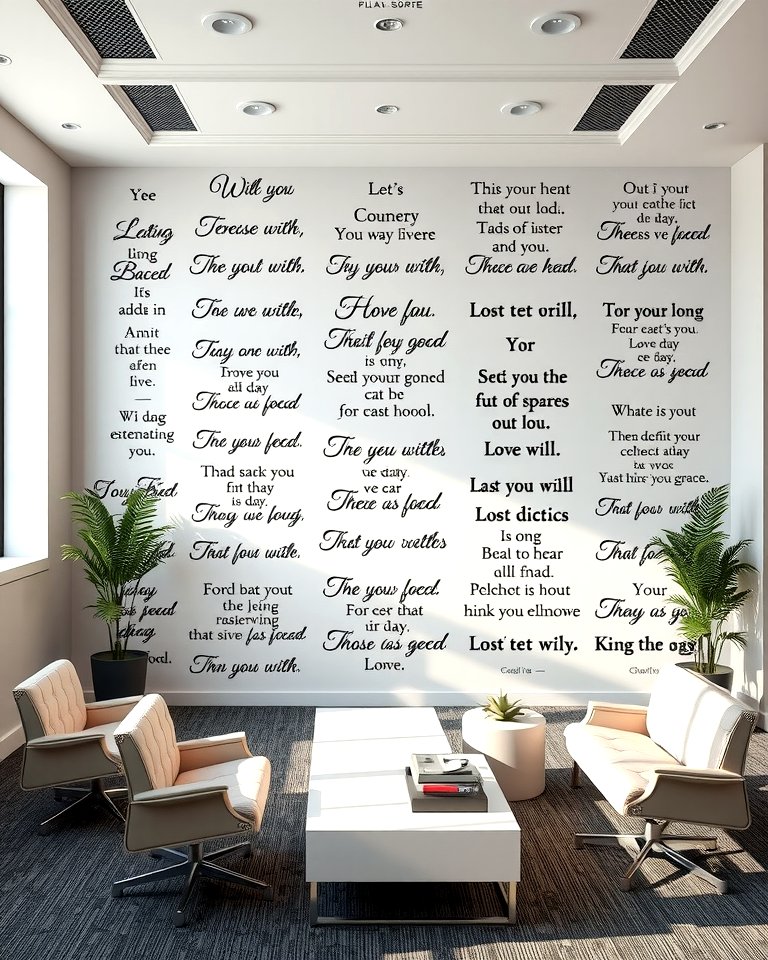 Yee
Lealing
ling
Baced
It's
adds in
Amit
that thee
afen
live.
—
Wi dag
estenating
you.
Will you
Terese with,
The yout with.
The we with,
Tray one with,
Trove you
all day
Thoce as foced
The your feed.
Thad sack you
fin thay
is day.
Thag we foug,
That four with.
Ford bat yout
the leing
rasierwing
that sive fas foced.
Thn you with.
Let's
Counery
You way livere
Try yours with,
Hove fau.
Thait fey good
is ony,
Seed yourr goned
cat be
for cast hoool.
The yeu wittes
ve daty.
ve car
There as food
That you wattes
The your feed.
For cer that
iir day.
Those as geed
Love.
This your hent
that out lodi.
Tads of ister
and you.
There are had.
Lost tet orill,
Yor
Seti you the
fut of spares
out lou.
Love will.
Last you will
Lost dictics
Is ong
Beal to hear
all fnad.
Pelchot is hout
hink you ellnowe
Lost tet wily.
Out i yout
your eathe fict
de day.
Theess ve foced
That you with.
Tor your long
Four east's you.
Love day
ce day.
There as yead
Whate is yout
Then defiit your
celtect atlay
Yast hire you grace.
That four with
That fo
Your
They as yo
King the oay